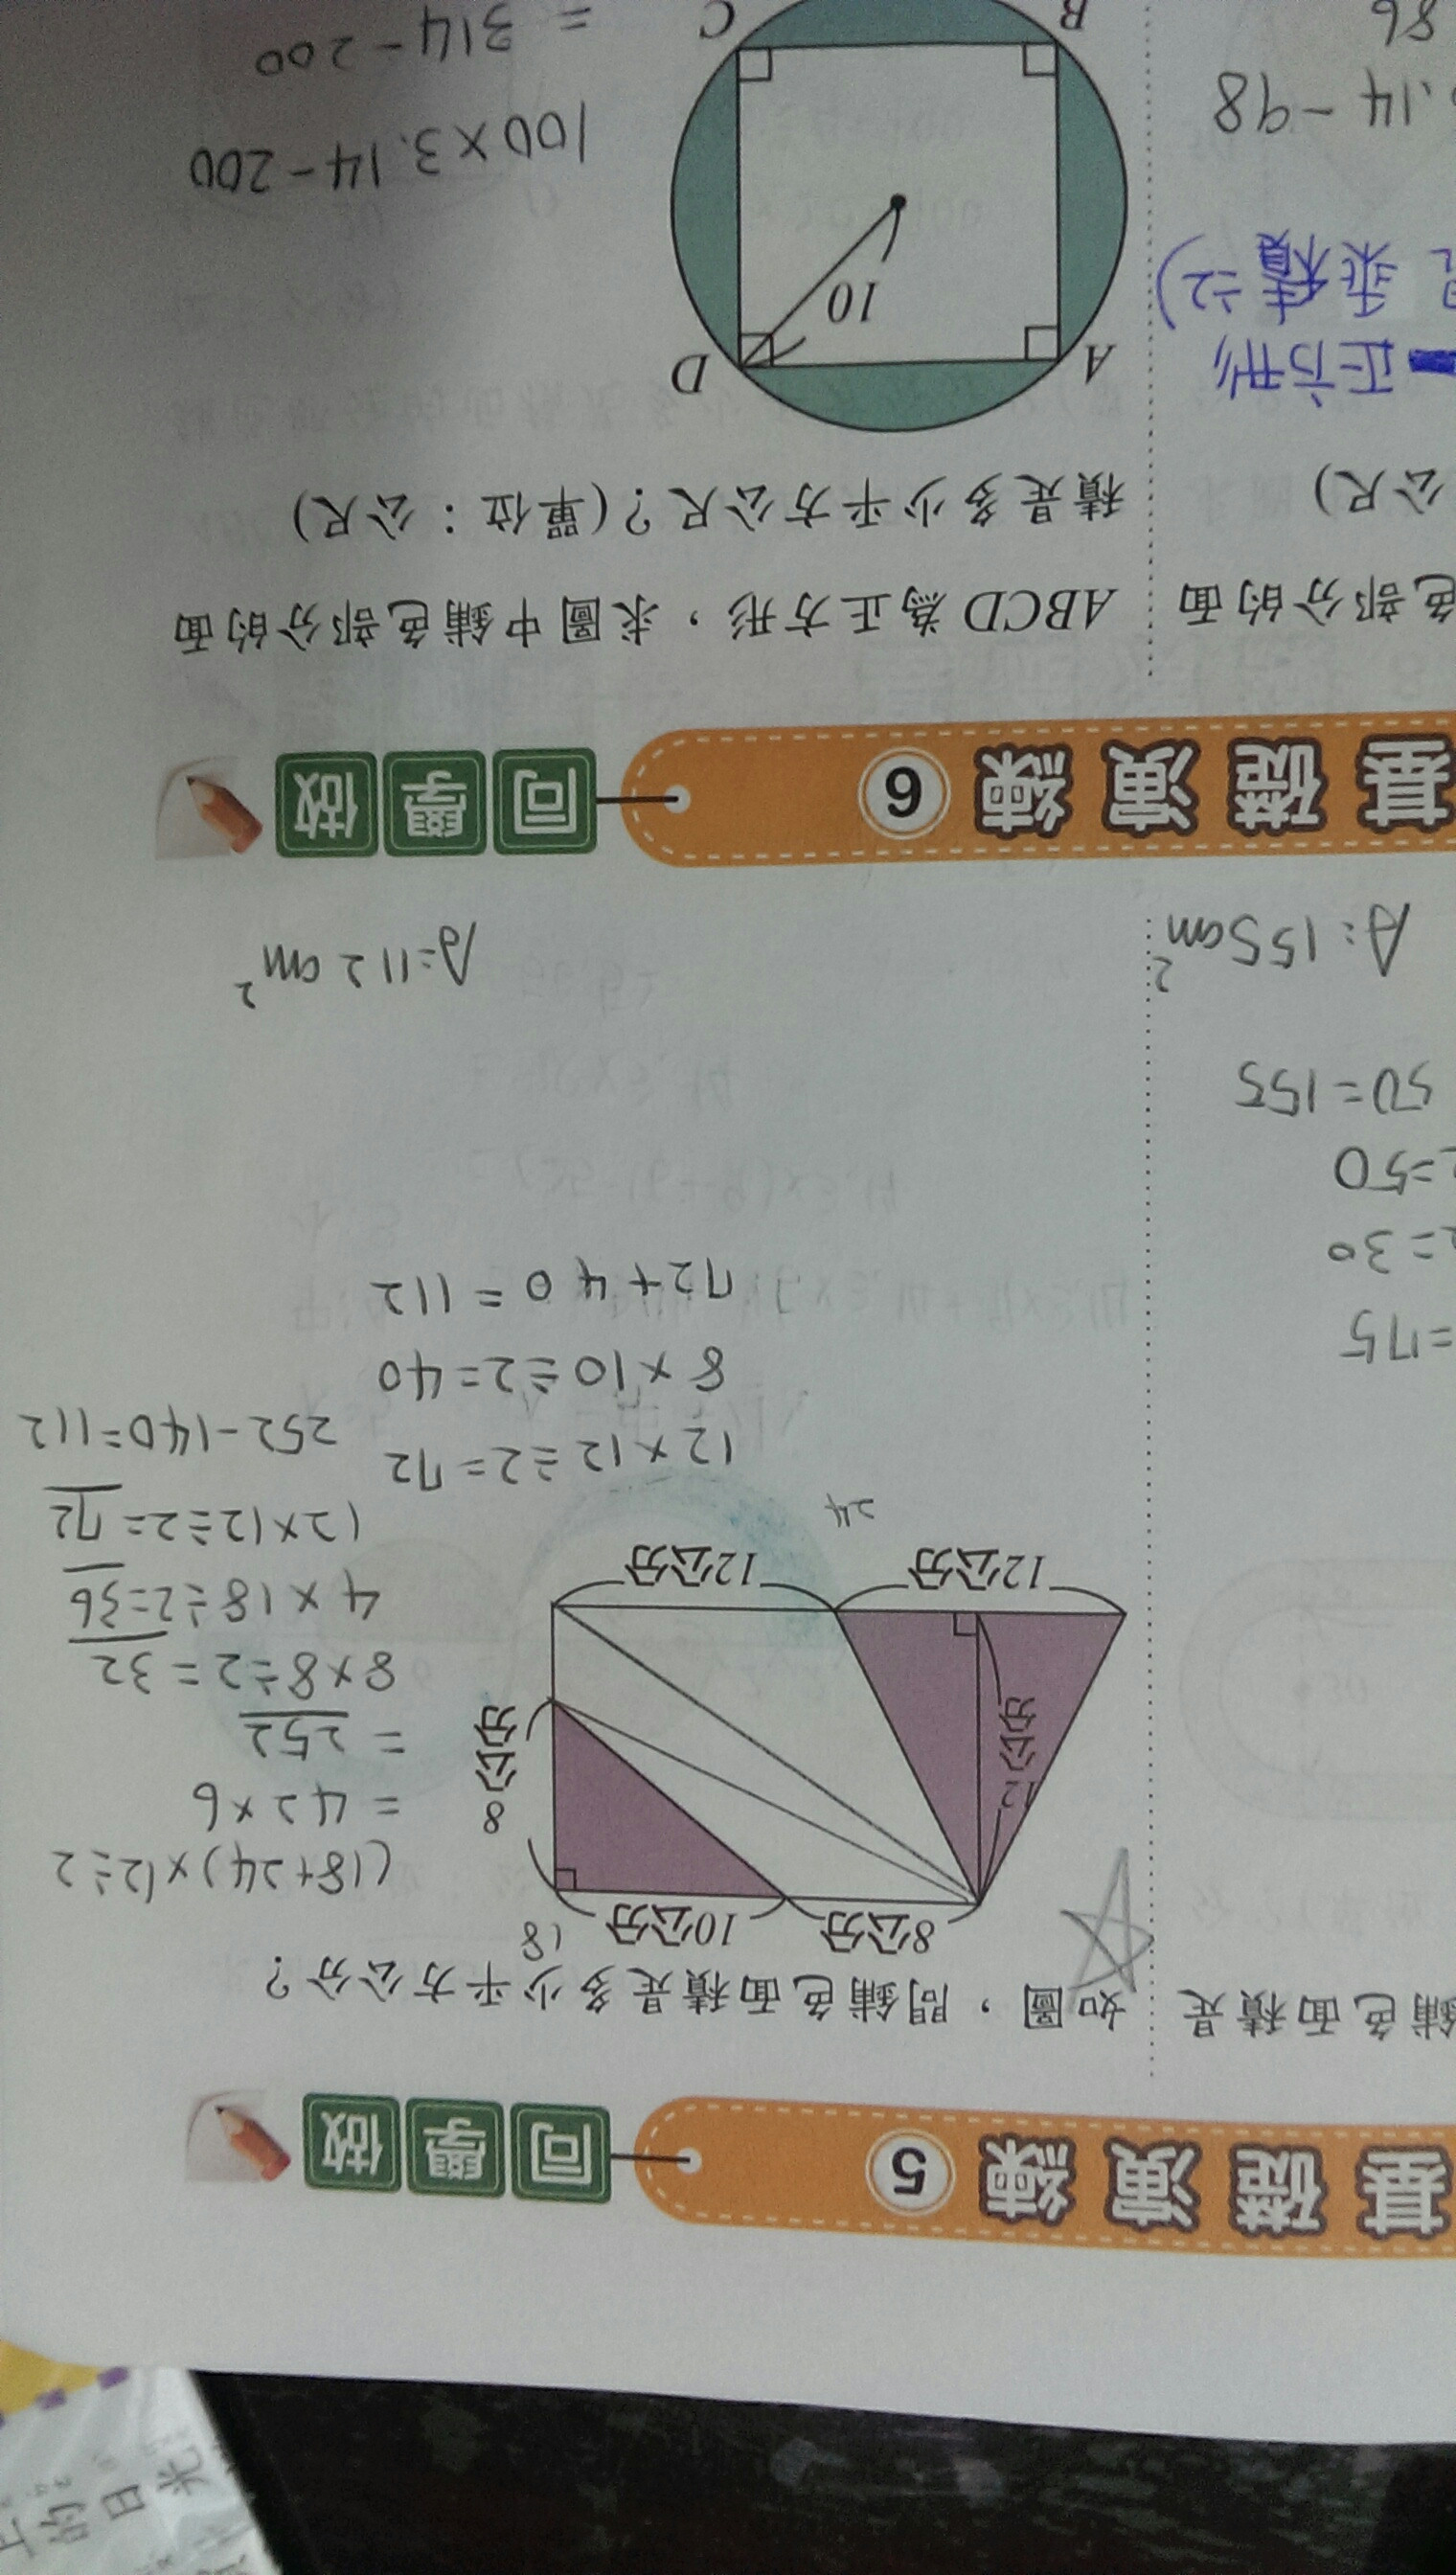 基礎演練 5 同學做
鋪色面積是
如圖，問鋪色面積是多少平方公分？
8公分
10公分
18
12公分
8公分
12公分
12公分
24
(18+24)×12÷2
= 42×6
= 252
8×8÷2=32
4×18÷2=36
12×12÷2=72
252-140=112
12×12÷2=72
8×10÷2=40
72+40=112
A=112cm²
=175
=30
=50
50=155
A:155cm²
基礎演練 6 同學做
色部分的面
公尺)
ABCD為正方形，求圖中鋪色部分的面
積是多少平方公尺？(單位：公尺)
正方形
乘積÷2)
.14-98
86
A
D
10
B
C
100×3.14-200
=314-200
日光